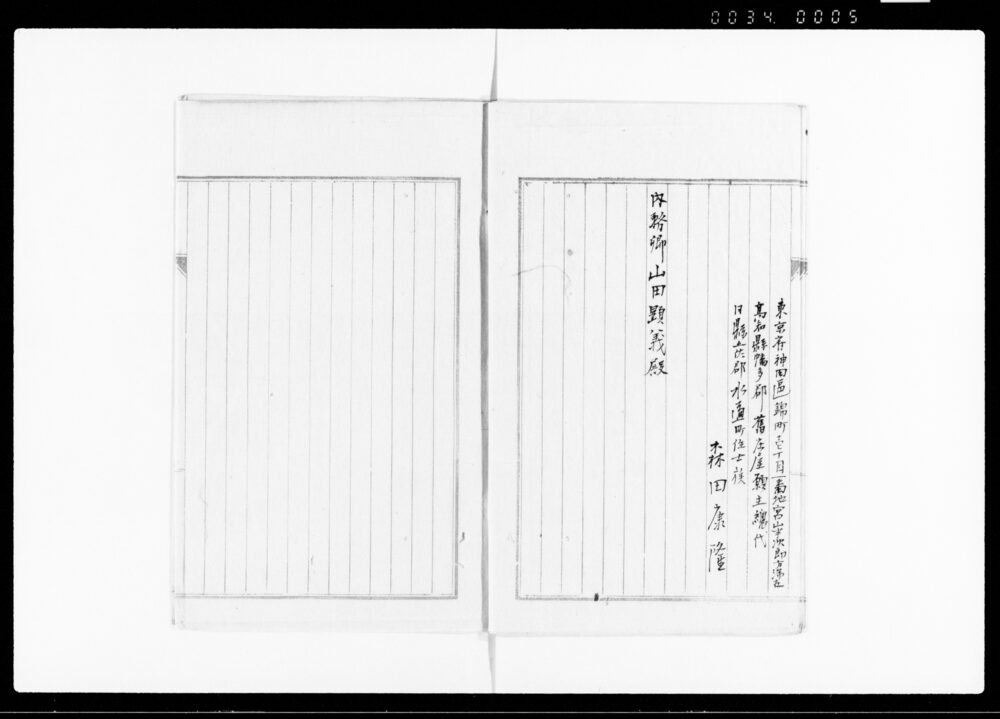 0034 0005
東京府神田區錦町壱丁目一番地宮山半次郎方滞在
高知縣幡多郡舊庄屋願主總代
同縣土佐郡水通町住士族
森田康隆
内務卿山田顯義殿